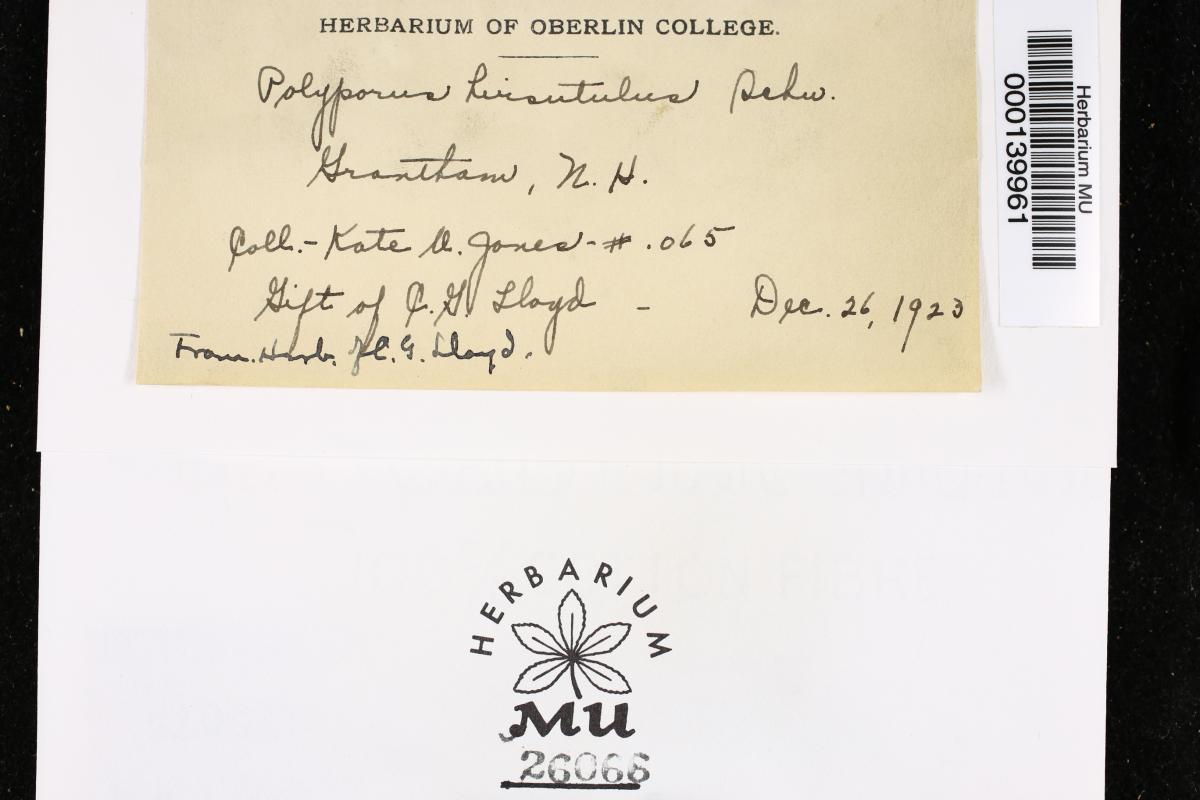 HERBARIUM OF OBERLIN COLLEGE.
Polyporus hirsutulus Schw.
Grantham, N. H.
Coll.- Kate A. Jones - # .065
Gift of C. G. Lloyd - Dec. 26, 1923
From. Herb. of C. G. Lloyd.
Herbarium MU
000139961
HERBARIUM
MU
26066